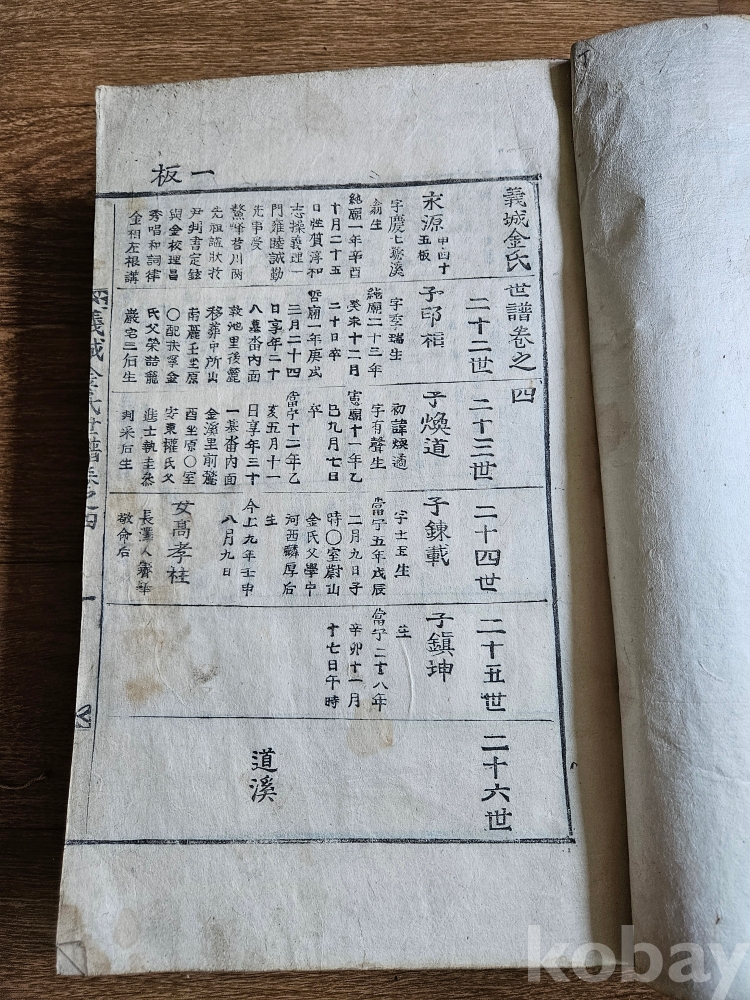 一板
義城金氏世譜卷之四
二十二世
二十三世
二十四世
二十五世
二十六世
永源 甲四十五板
字慶七號溪
生
純廟一年辛酉
十月二十五
日性質淳和
志操義理一
門雍睦誠勤
先事受
先祖諡狀於
尹判書定鉉
與金校理昌
秀唱和詞律
子印相
字季瑞生
純廟二十三年
癸未十二月
二十日卒
哲廟一年庚戌
三月二十四
日享年二十
八墓畓內面
敦池里後麓
移葬中所山
南麗壬坐原
〇配扶寧金
氏父榮喆籠
巖宅三后生
子煥道
初諱煥適
字有聲生
憲廟十一年乙
巳九月七日
卒
當宁十二年乙
亥五月十一
日享年三十
一墓畓內面
金溪里前麓
酉坐原〇室
安東權氏父
進士執圭參
判采后生
子鍊載
字士玉生
當宁五年戊辰
二月九日子
時〇室蔚山
金氏父學中
河西麟厚后
生
今上九年壬申
八月九日
女高孝柱
長澤人
敬命后
子鎭坤
生
當宁二十八年
辛卯十一月
十七日午時
道溪
義城金氏世譜卷之四
一
kobay